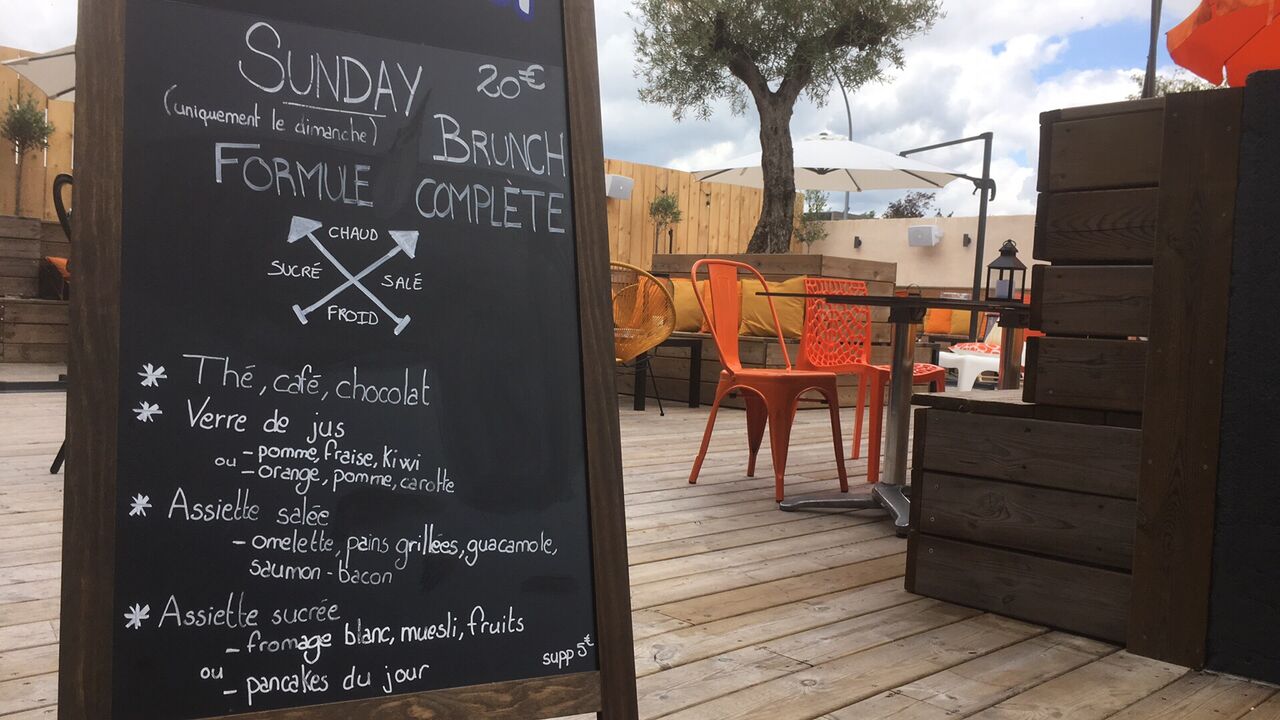 SUNDAY 20€
(uniquement le dimanche)
BRUNCH
FORMULE COMPLÈTE
CHAUD
SUCRÉ SALÉ
FROID
* Thé, café, chocolat
* Verre de jus
- pomme, fraise, kiwi
ou - orange, pomme, carotte
* Assiette salée
- omelette, pains grillées, guacamole,
saumon - bacon
* Assiette sucrée
- fromage blanc, muesli, fruits
ou
- pancakes du jour
supp 5€